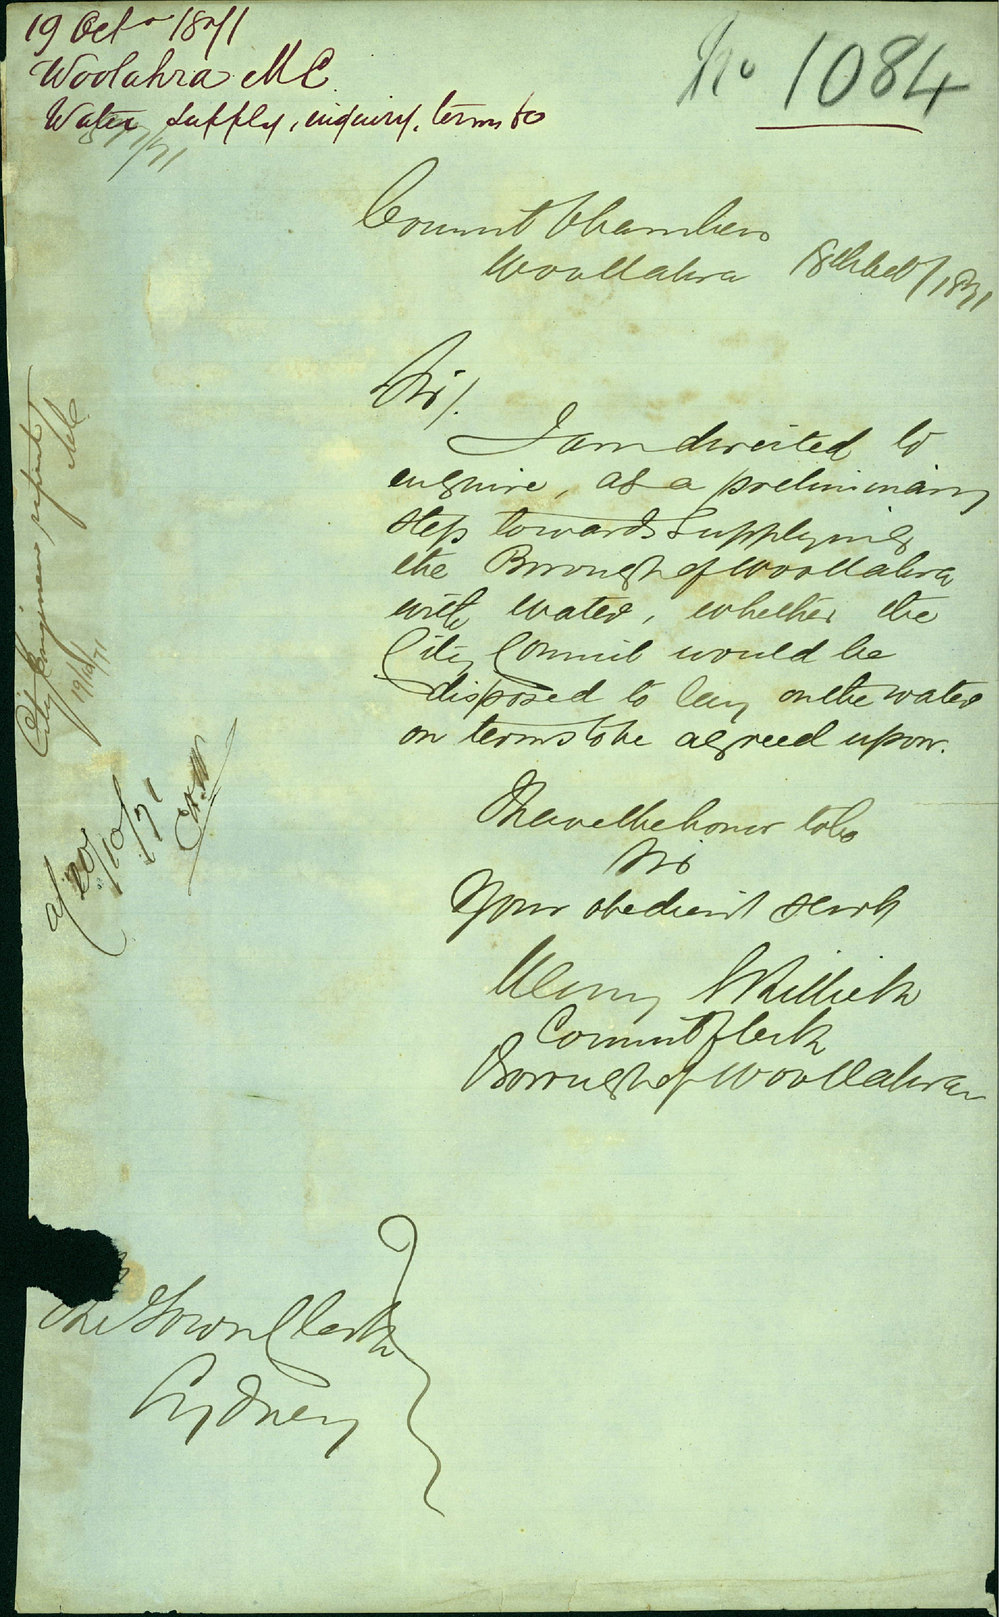 19 Oct 1871
Woolahra M C
Water supply, inquiry, terms to
No 1084
Council Chambers
Woollahra 18th Oct/1871
Sir/.
I am directed to
enquire, as a preliminary
step towards supplying
the Borough of Woollahra
with water, whether the
City Council would be
disposed to lay on the water
on terms to be agreed upon.
I have the honor to be
Sir
Your obedient Servt
Henry
Council Clerk
Borough of Woollahra
The Town Clerk
Sydney
City Engineers report
19/10/71
20/10/71